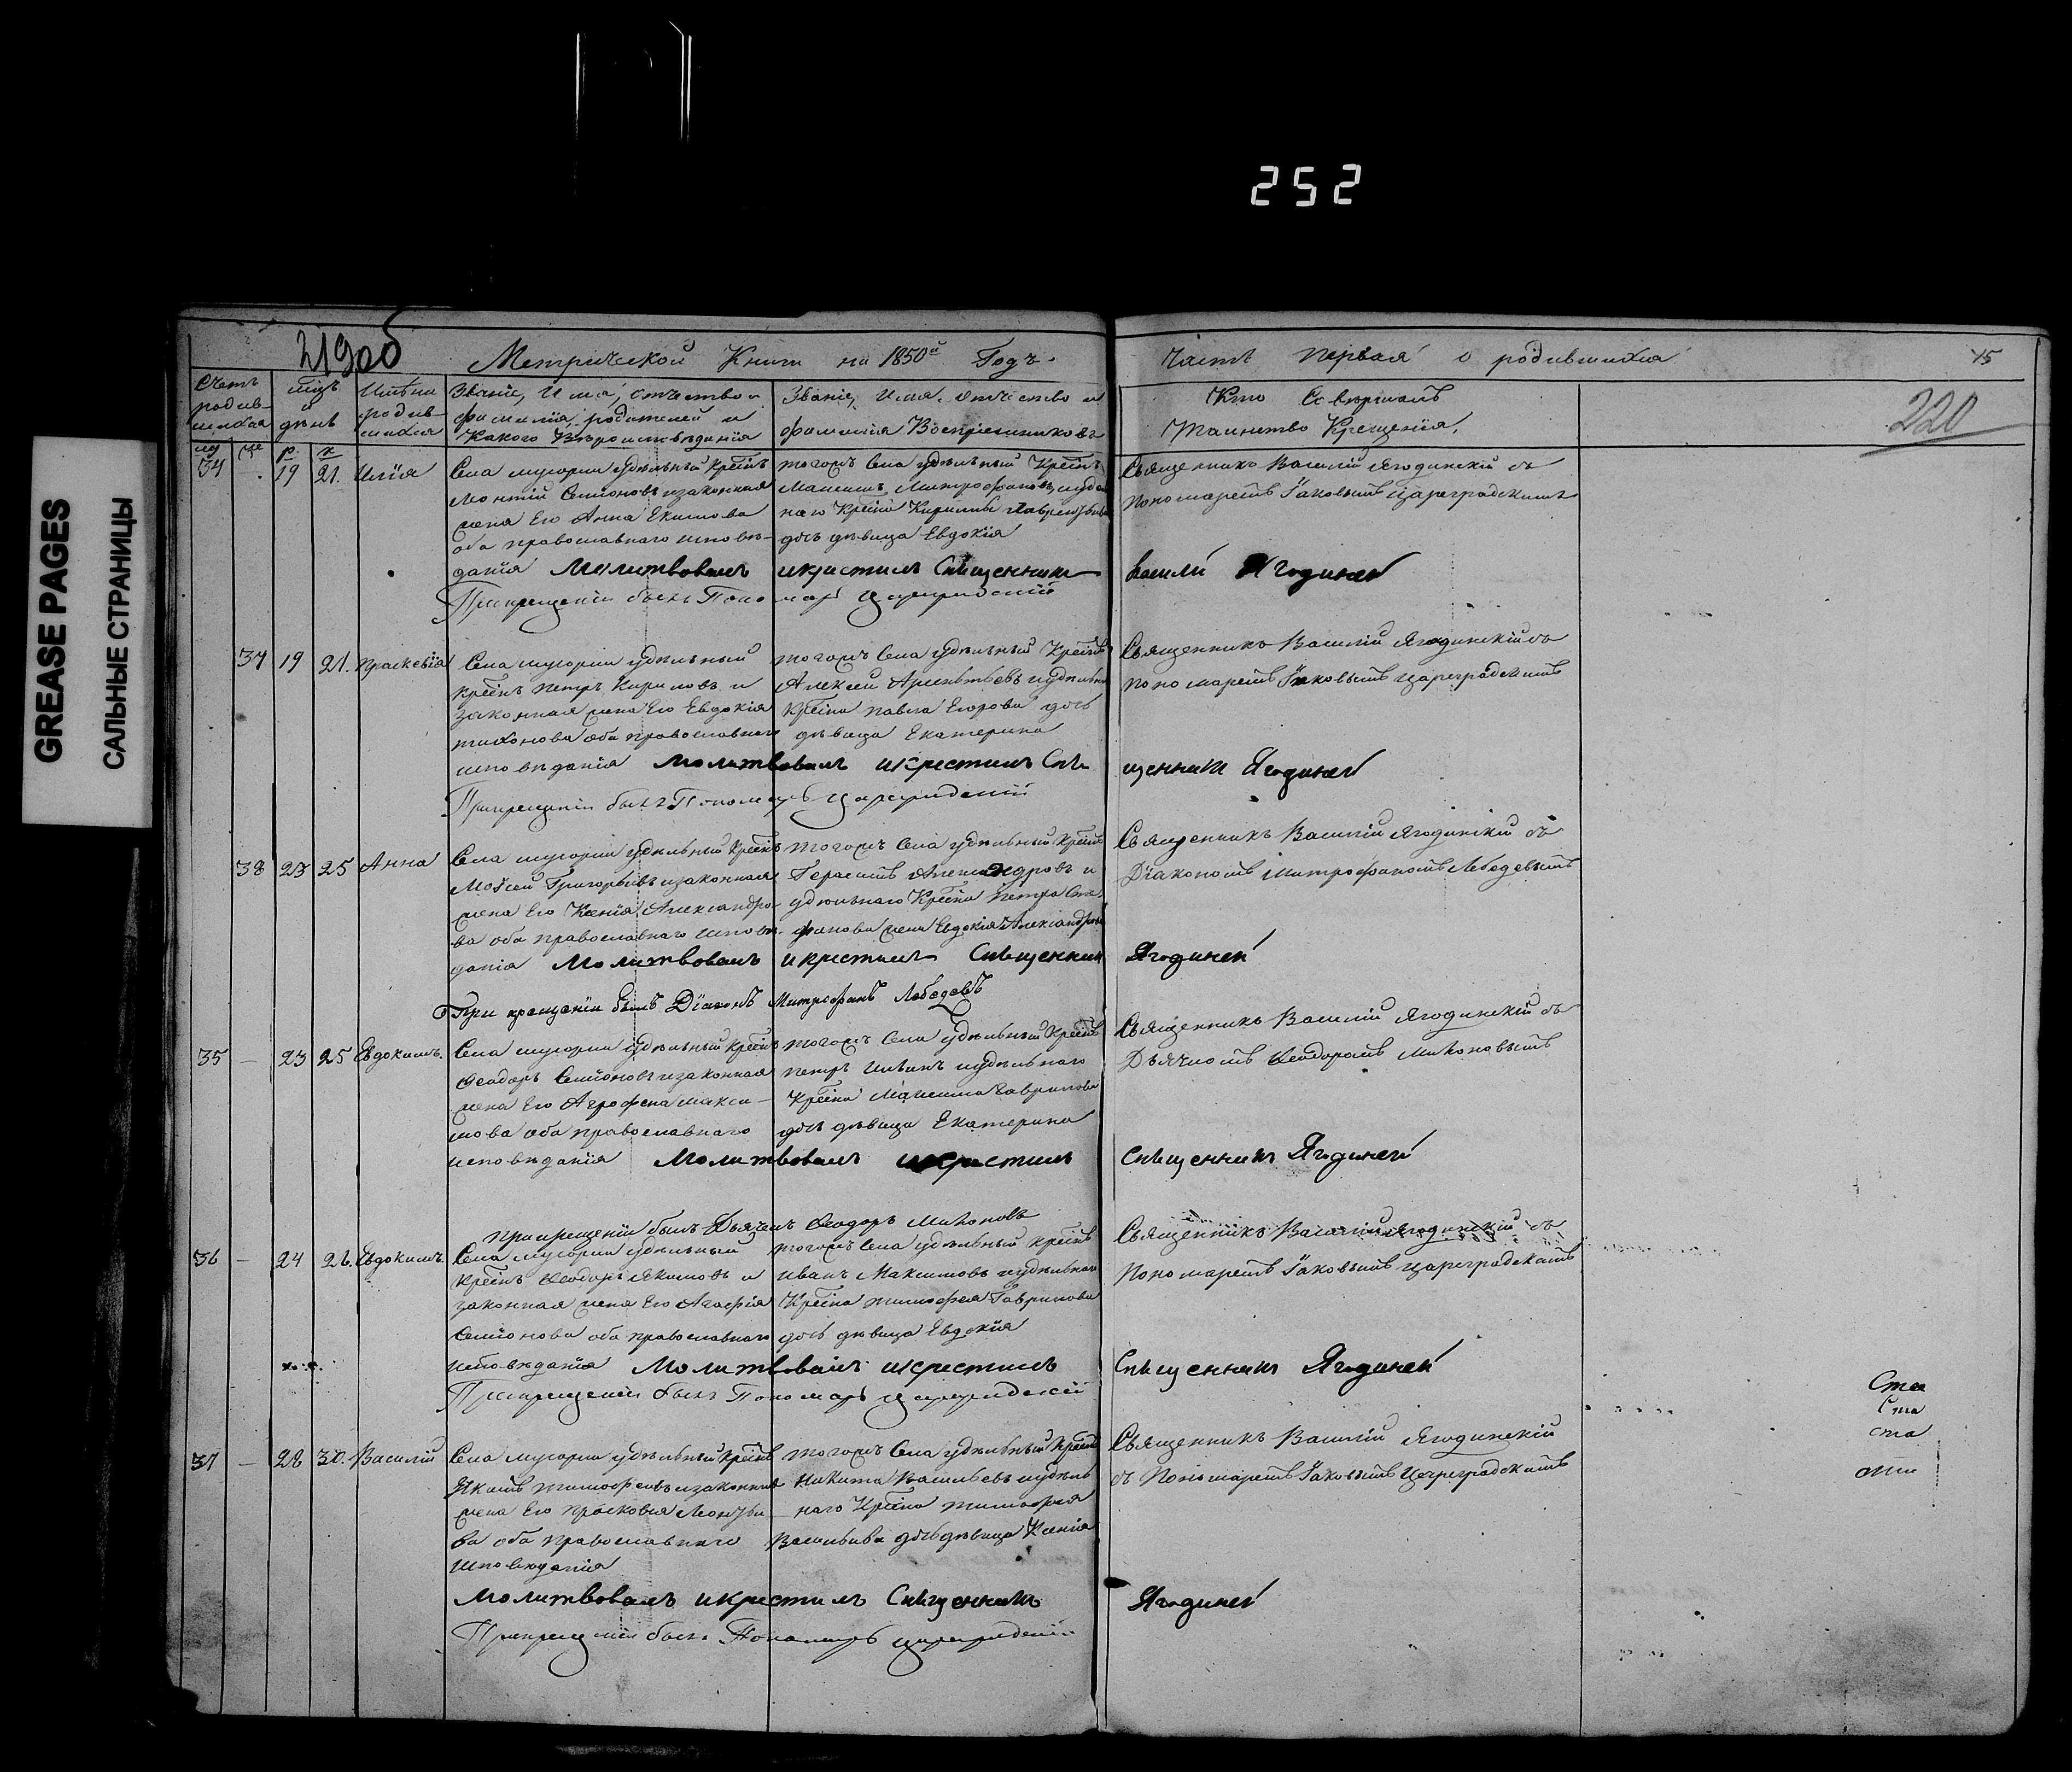 252
GREASE PAGES
САЛЬНЫЕ СТРАНИЦЫ
219об
Метрической Книги на 1850й Годъ.
Часть первая о родившихся
45
220
Счетъ родившихся
мцъ и день
Имѣна родившихся
Званіе, Имя, отчество и фамилія родителей и Какого Вѣроисповѣданія
Званіе, Имя, Отчество и фамилія Воспріемниковъ
Кто Совершалъ Таинство Крещенія.
р. к
34 19 21. Илія
Села удѣльный крѣинъ
Леонтій Семіоновъ изаконная
жена Его Анна Екимова
оба православнаго исповѣ-
данія Молитвовалъ
тогожъ Села удѣльный Крѣинъ
Максимъ Митрофановъ иудѣль
наго Крѣина Кирилы
дочь дѣвица Евдокія
икрестилъ Священникъ
Священникъ Василій Ягодинскій съ
Пономаремъ Іаковымъ Цареградскимъ
Василій Ягодинскій
Прикрещеніи былъ Пономарь Цареградскій
37 19 21. Праскевія
Села удѣльный
крѣинъ Петръ Кириловъ и
законная жена Его Евдокія
Тихонова оба православнаго
исповѣданія Молитвовалъ
тогожъ Села удѣльный Крѣинъ
Алексей иудѣльна
Крѣина Павла Егорова дочь
дѣвица Екатерина
икрестилъ Свя
Священникъ Василій Ягодинскій съ
Пономаремъ Іаковымъ Цареградскимъ
щенникъ Ягодинскій
Прикрещеніи былъ Пономарь Цареградскій
38 23 25 Анна
Села удѣльный крѣинъ
Моѵсей Григорьевъ изаконная
жена Его Ксенія Александро-
ва оба православнаго исповѣ-
данія Молитвовалъ
тогожъ Села удѣльный крѣинъ
Герасимъ Александровъ и
удѣльнаго Крѣина Петра Сте-
фанова жена Евдокія Александрова
икрестилъ Священникъ
Священникъ Василій Ягодинскій съ
Діакономъ Митрофаномъ Лебедевымъ
Ягодинскій
При крещеніи былъ Діаконъ Митрофанъ Лебедевъ
35 – 23 25 Евдокимъ.
Села удѣльный крѣинъ
Ѳеодоръ Семіоновъ изаконная
жена Его Агрофена Макси-
мова оба православнаго
исповѣданія Молитвовалъ
тогожъ Села удѣльный Крѣинъ
Петръ Ильинъ иудѣльнаго
Крѣина Максима Гаврилова
дочь дѣвица Екатерина
икрестилъ
Священникъ Василій Ягодинскій съ
Дьячкомъ Ѳеодоромъ Михоновымъ
Священникъ Ягодинскій
Прикрещеніи былъ Дьячекъ Ѳеодоръ Михоновъ
36 – 24 26. Евдокимъ.
Села удѣльный
Крѣинъ Ѳеодоръ Якимовъ и
законная жена Его Агафія
Семіонова оба православнаго
исповѣданія Молитвовалъ
тогожъ Села удѣльный крѣинъ
Иванъ Максимовъ иудѣльнаго
Крѣина Тимофея Гаврилова
дочь дѣвица Евдокія
икрестилъ
Священникъ Василій Ягодинскій съ
Пономаремъ Іаковымъ Цареградскимъ
Священникъ Ягодинскій
Прикрещеніи былъ Пономарь Цареградскій
37 – 28 30. Василій
Села удѣльный крѣинъ
Якимъ Тимоѳеевъ изаконная
жена Его Прасковія Леонтье-
ва оба православнаго
исповѣданія
тогожъ Села удѣльный Крѣинъ
Никита Васильевъ иудѣль
наго Крѣина Тимофея
Васильева дочь дѣвица Ксенія
Священникъ Василій Ягодинскій
съ Пономаремъ Іаковымъ Цареградскимъ
Молитвовалъ икрестилъ Священникъ Ягодинскій
Прикрещеніи былъ Пономарь Цареградскій